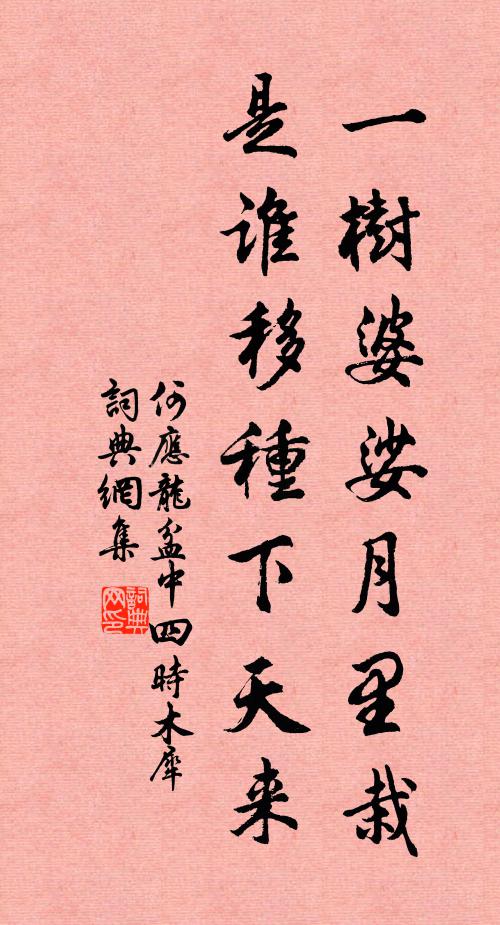 一樹婆娑月里栽
是谁移種下天来
何應龍盆中四時木犀
詞典網集
詞典网印